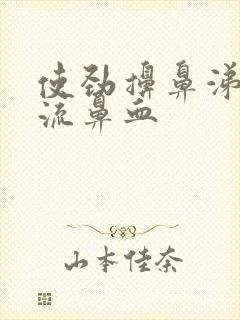 使劲擤鼻涕
流鼻血
山本佳奈